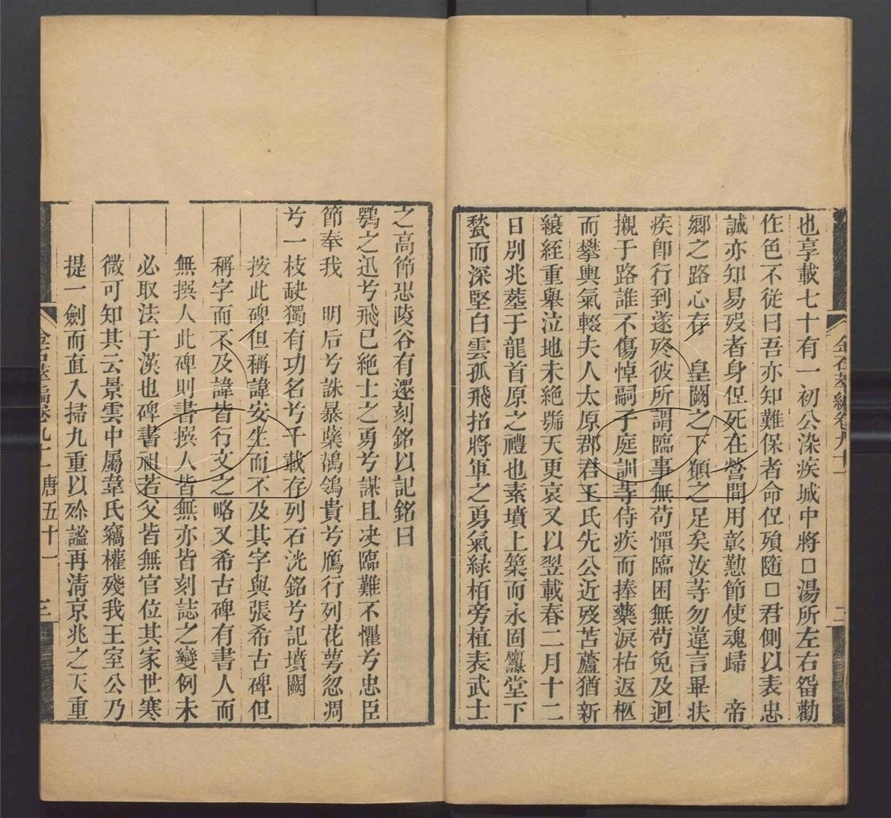 也享載七十有一初公染疾城中將□湯所左右咎勸
作色不從曰吾亦知難保者命但殞隨□君側以表忠
誠亦知易殁者身但死在營間用彰懃節使魂歸　帝
鄉之路心存　皇闕之下類之足矣汝等勿違言畢扶
疾卽行到遂終彼所謂臨事無苟憚臨困無苟免及迴
櫬于路誰不傷悼嗣子庭訓等侍疾而捧藥淚枯返柩
而攀輿氣輟夫人太原郡君王氏先公近殁苦蘆猶新
縗絰重舉泣地未絕號天更哀又以翌載春二月十二
日別兆塟于龍首原之禮也素墳上築而永固堂下
甃而深堅白雲孤飛招將軍之勇氣綠栢旁植表武士
金石萃編卷九十一
二
之高節恐陵谷有遷刻銘以記銘曰
鶚之迅兮飛已絕士之勇兮謀且决臨難不懼兮忠臣
節奉我　明后兮誅暴蘖鵠鴿貴兮鴈行列花萼忽凋
兮一枝缺獨有功名兮千載存列石洸銘兮記墳闕
按此碑但稱諱安生而不及其字與張希古碑但
稱字而不及諱皆行文之略又希古碑有書人而
無撰人此碑則書撰人皆無亦皆刻誌之變例未
必取法于漢也碑書祖若父皆無官位其家世寒
微可知其云景雲中屬韋氏竊權殘我王室公乃
提一劍而直入掃九重以殄謐再清京兆之天重
金石萃編卷九十一唐五十一
三